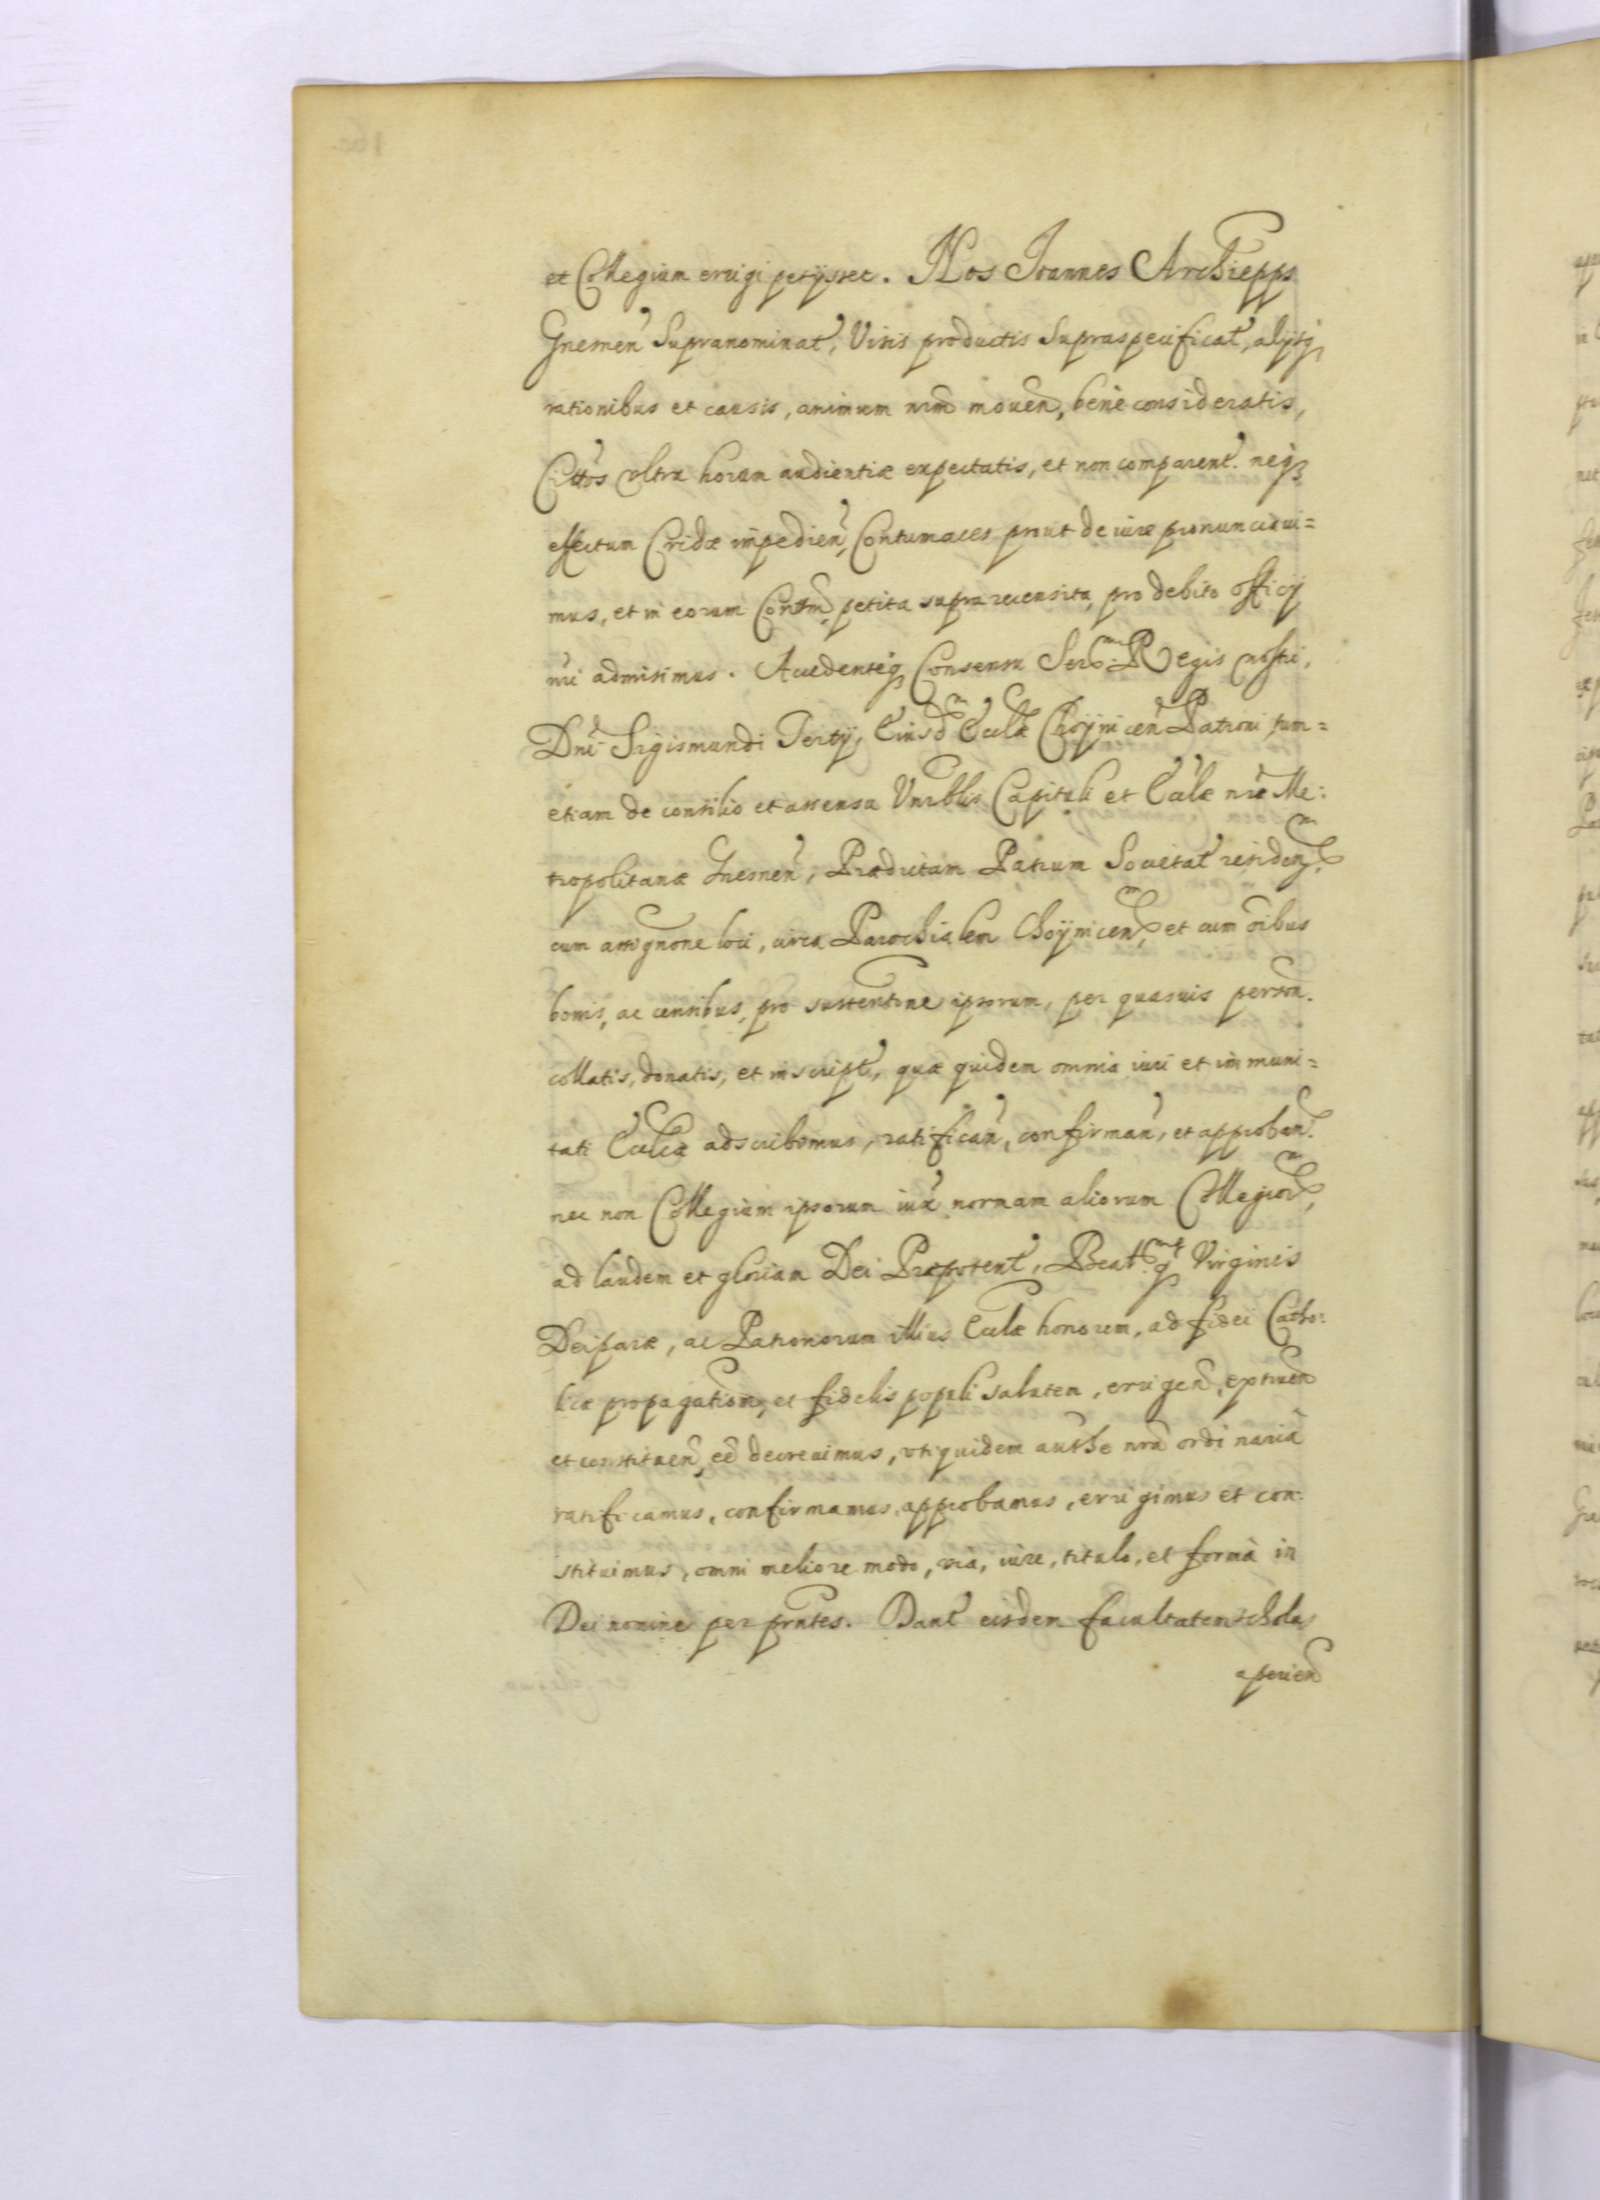 et Collegium errigi petijsset. Nos Ioannes Archiepps
Gnesnen Supranominat, Visis productis Supraspecificat, alijsq
rationibus et causis, animum nrm mouen, benè consideratis,
Cittos vltra horam audientiæ expectatis, et non comparent. neq
effectum Cridæ impedien, Contumaces prout de iure pronunciaui=
mus, et in eorum Contm, petita supra recensita, pro debito officij
nri admisimus. Accedenteq Consensu Sermi Regis nostri,
Dni Sigismundi Tertij, Eiusdm Eccliæ Choynicen Patroni tum=
etiam de consilio et assensu Vnrblis Capituli et Eccliæ nræ Me:
tropolitanæ Gnesnen, Prædictam Patrum Societat residen,
cum assignone loci, circa Parochialem Choynicen, et cum oibus
bonis, ac censibus, pro sustentone ipsorum, per quasuis person.
collatis, donatis, et inscript, quæ quidem omnia iuri et immuni=
tati Eccliæ adscribimus, ratifican, confirman, et approban.
nec non Collegium ipsorum iux normam aliorum Collegior,
ad laudem et gloriam Dei Præpotent, Beatmæq Virginis
Deiparæ, ac Patronorum illius Eccliæ honorem, ad fidei Catho:
licæ propagation, et fidelis populi salutem, errigen, extruen
et constituen, eē decreuimus, vti quidem authe nrâ ordinariâ
ratificamus, confirmamus, approbamus, errigimus et con:
stituimus, omni meliore modo, viâ, iure, titulo, et formâ in
Dei nomine per prntes. Dant eisdem facultatem scholas
aperien